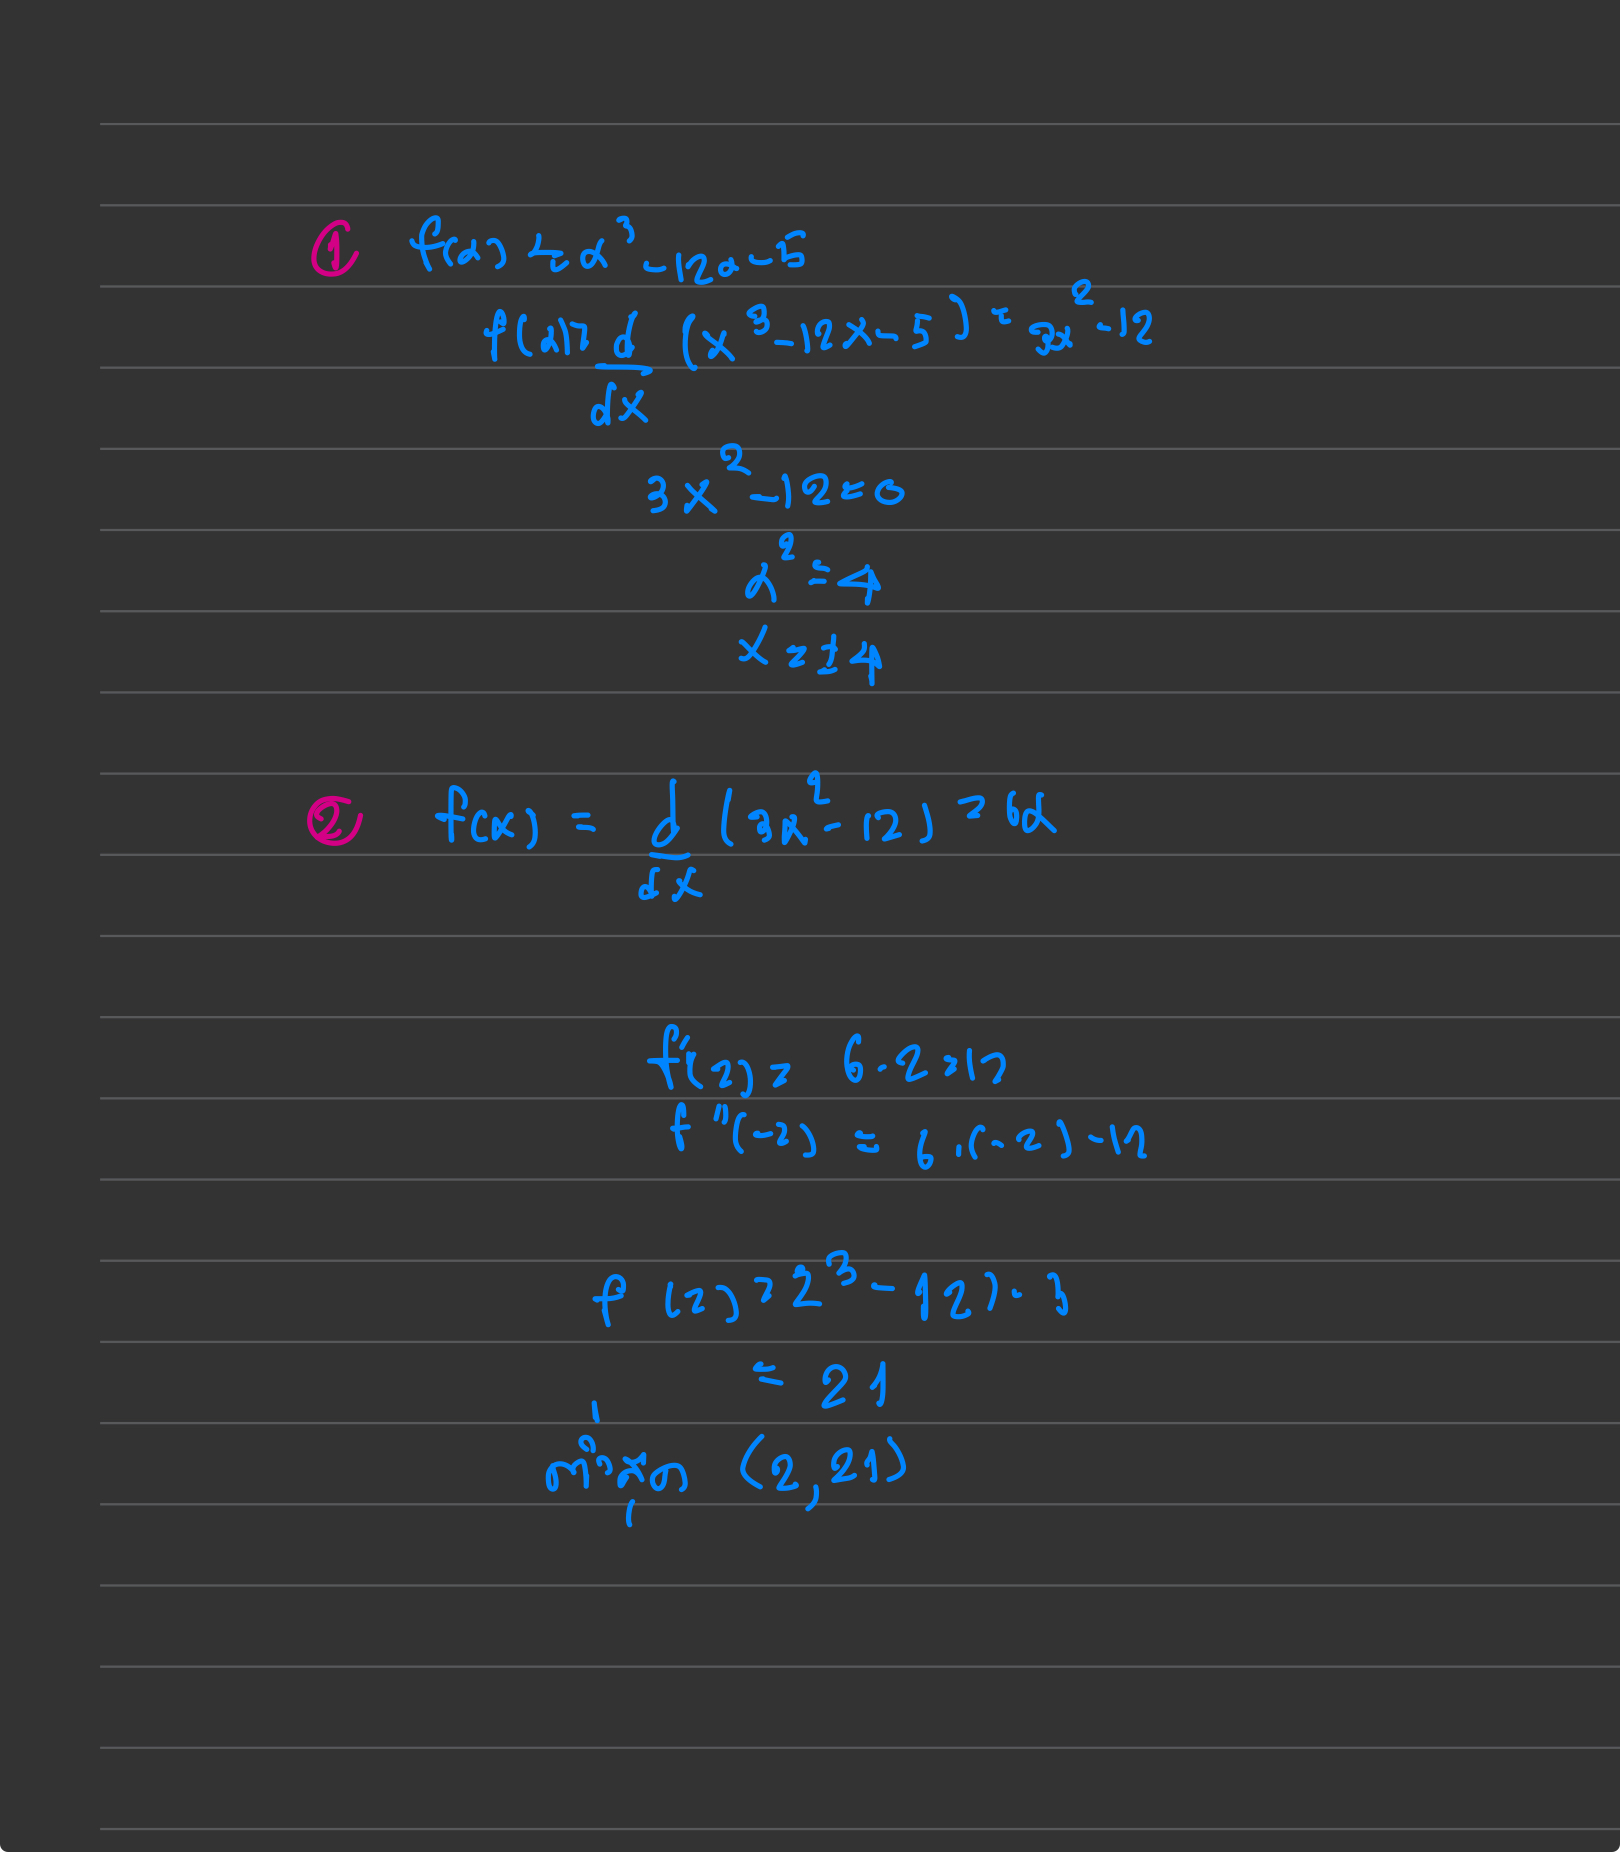 ① f(x) = x³ - 12x - 5
f(x) = d/dx (x³ - 12x - 5) = 3x² - 12
3x² - 12 = 0
x² = 4
x = ± 4
② f(x) = d/dx (3x² - 12) = 6x
f''(2) = 6·2 = 12
f''(-2) = 6·(-2) - 12
f(2) = 2³ - 12)·
= 21
(2, 21)